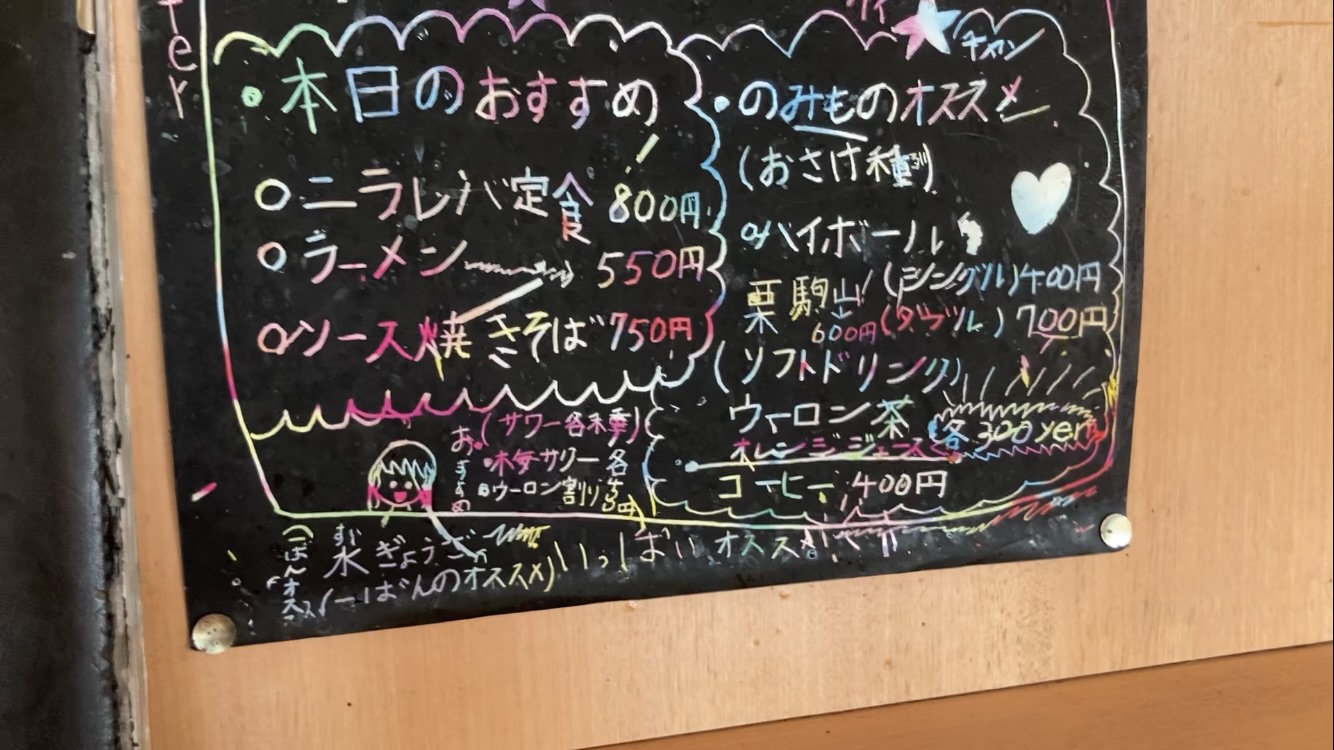 Ter
チャン
・本日のおすすめ
○ニラレバ定食 800円
○ラーメン 550円
○ソース焼きそば 750円
・のみものオススメ
(おさけ種類)
○ハイボール
(シングル) 400円
栗駒山 600円 (ダブル) 700円
(ソフトドリンク)
ウーロン茶
オレンジジュース
各300yen
コーヒー 400円
おすすめ
(サワー各
サワー各
ウーロン割り
水ぎょうざ
(一ばんのオススメ)
いっぱい オススメ